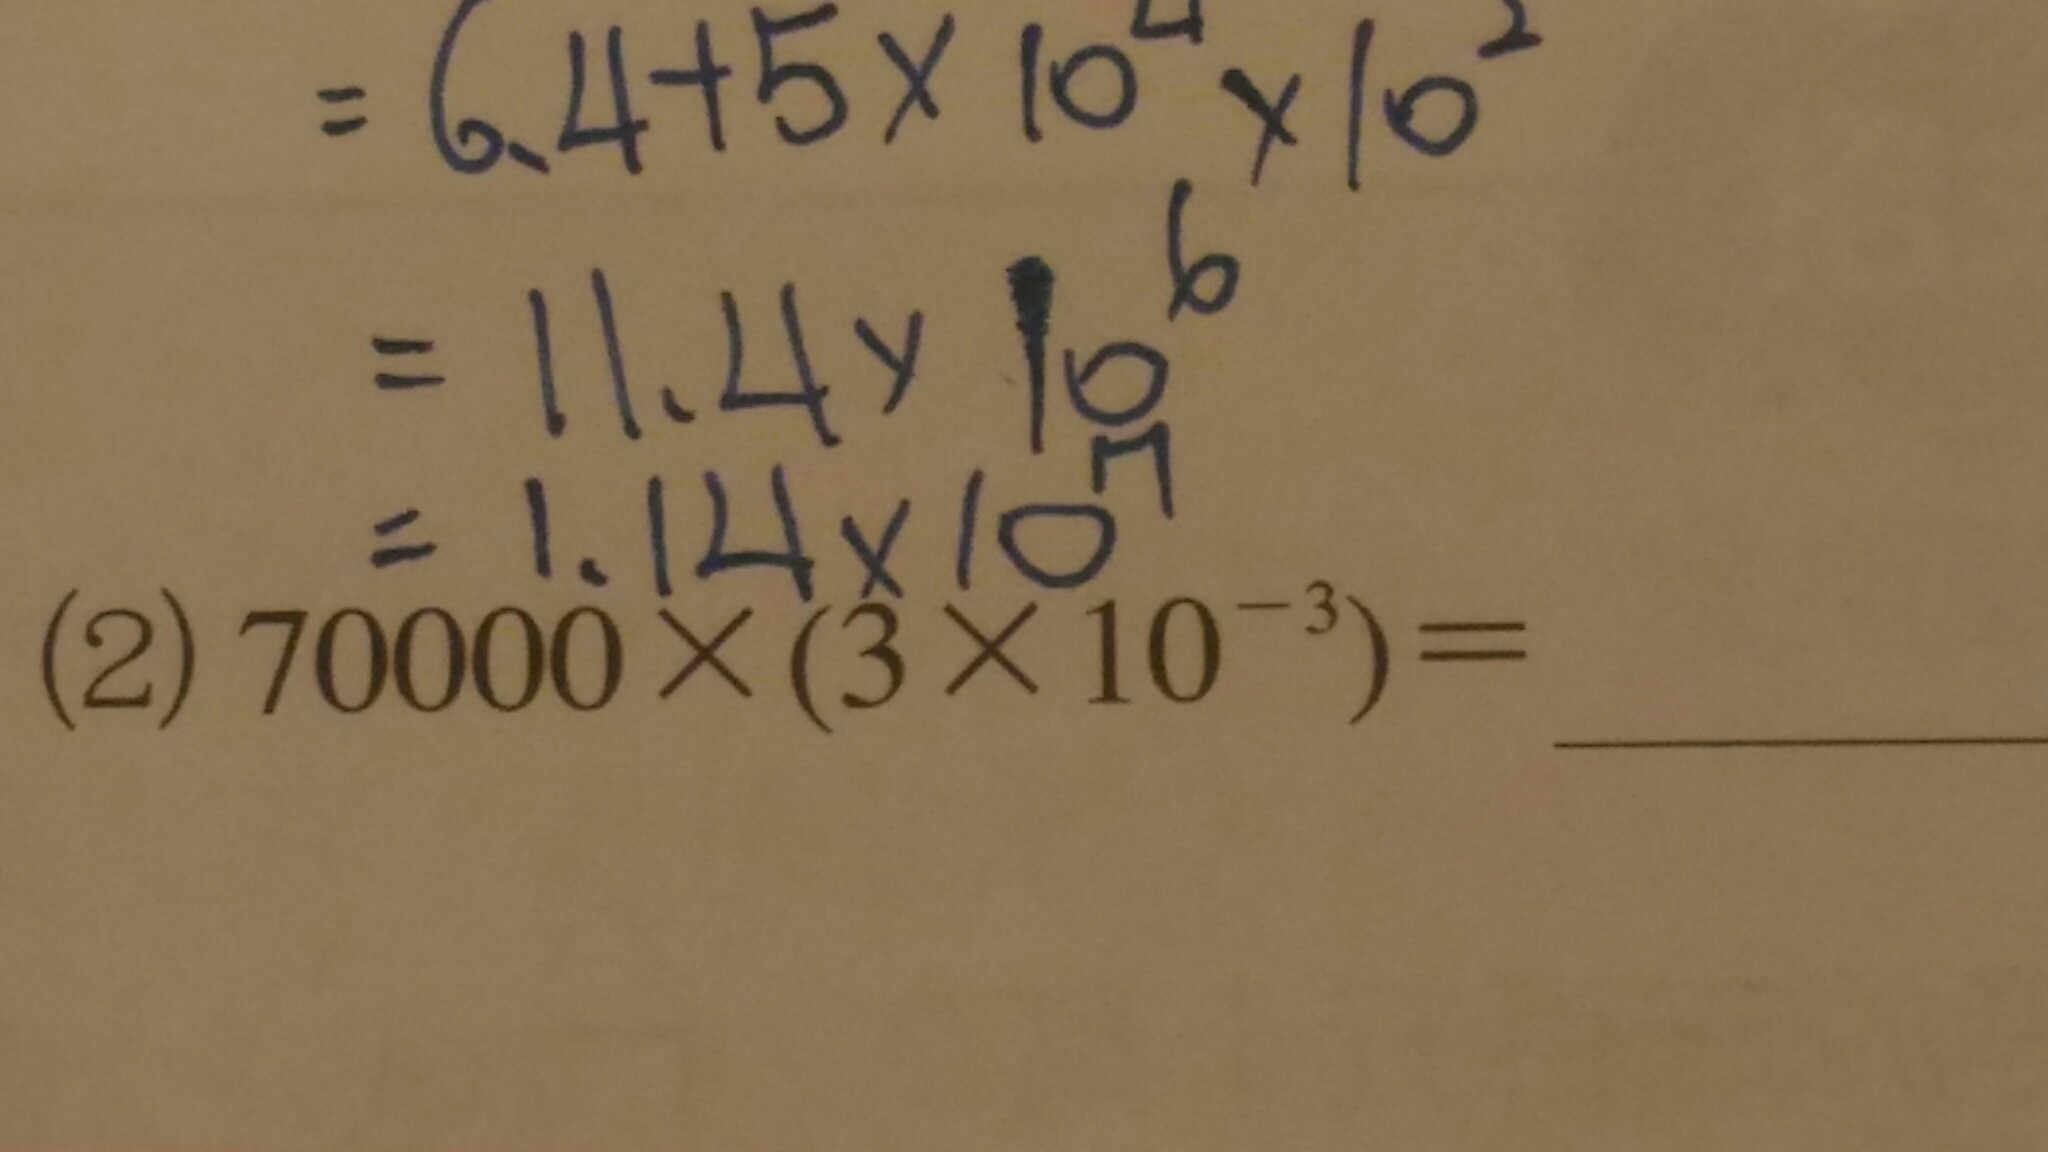 = 6.4+5×10⁴×10²
= 11.4×10⁶
= 1.14×10⁷
(2) 70000×(3×10⁻³)=